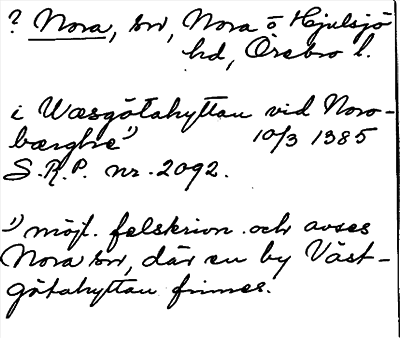 ? Nora, sn, Nora o Hjulsjö
hd, Örebro l.
i Wæsgötahyttan vid Noro-
bærghe¹⁾ 10/3 1385
S.R.P. nr. 2092.
¹⁾ möjl. felskrivn. och avses
Nora sn, där en by Väst-
götahyttan finnes.